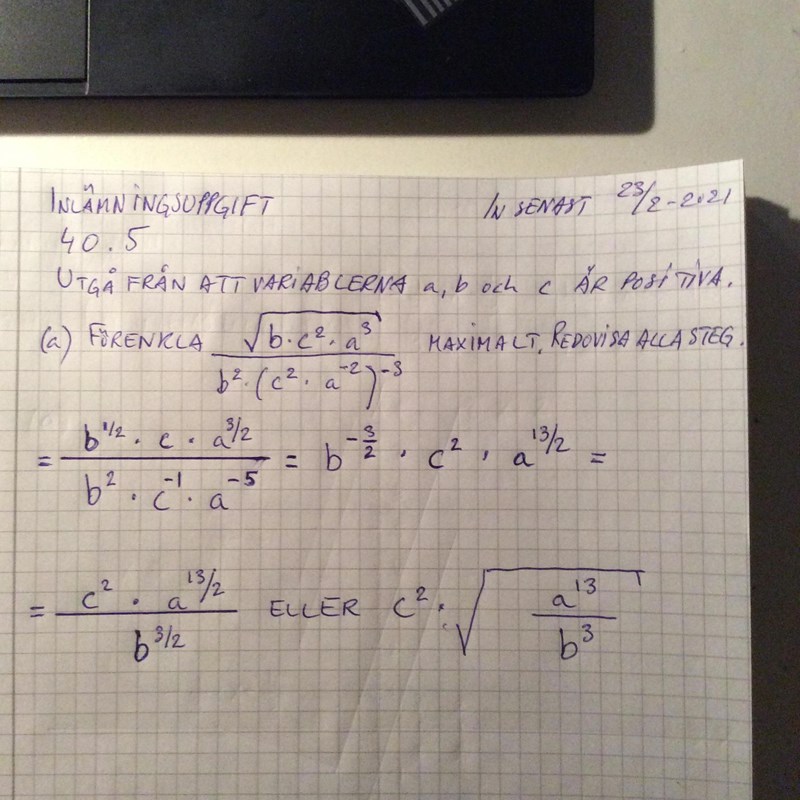 INLÄMNINGSUPPGIFT IN SENAST 23/2-2021
40.5
UTGÅ FRÅN ATT VARIABLERNA a, b och c ÄR POSITIVA.
(a) FÖRENKLA √(b·c²·a³) / (b²·(c²·a⁻²)⁻³) MAXIMALT. REDOVISA ALLA STEG.
= (b^{1/2}·c·a^{3/2}) / (b²·c⁻¹·a⁻⁵) = b^{-3/2}·c²·a^{13/2} =
= (c²·a^{13/2}) / b^{3/2} ELLER c²·√(a¹³/b³)